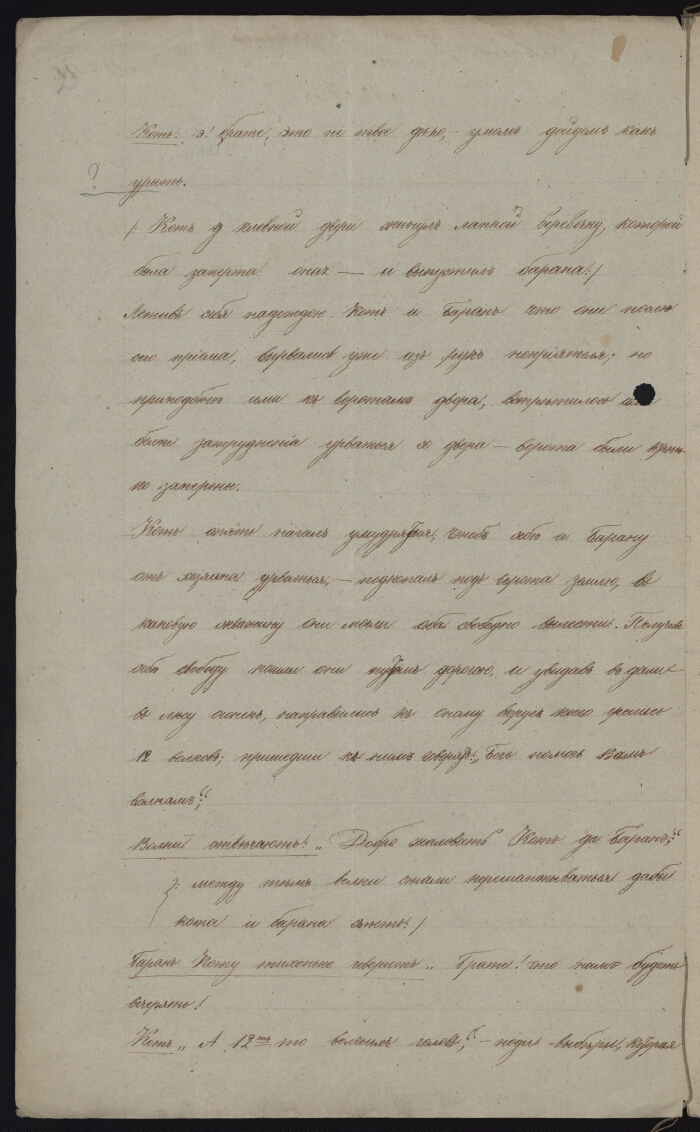 Котъ: э! брате, это не твое дѣло, – умомъ дойдемъ какъ
?
урыть.
/: Котъ у хлевной двери жикнулъ лапкой веревочку, которой
была заперта она – и выпустилъ барана :/
Льстивъ себя надеждою Котъ и Баранъ что они после
сего приема, вырвались уже изъ рукъ неприятеля; но
приподобясь ими къ воротамъ двора, встретилось
более затруднения урваться со двора – ворота были креп-
ко заперты.
Котъ опять началъ умудряться, чтобъ себе и Барану
отъ хозяина урваться, – подкопалъ подъ ворота землю, въ
каковую скважину они могли оба свободно вылезти. Получивъ
себе свободу пошли они путемъ дорогою, и увидавъ въ дали
въ лесу огонекъ, направились къ оному вкругъ коего грелись
12 волковъ; пришедши къ нимъ говорятъ: „Богъ помочь Вамъ
волкамъ“;
Волки отвечаютъ: „Добро жаловать Котъ да Баранъ“;
/: между темъ волки стали перешептываться дабы
кота и барана съесть :/
Баранъ Коту тихонько говоритъ „Брате! что намъ будетъ
вечерять!
Котъ „А 12ть то волчьихъ головъ“, – поди выбери, которая